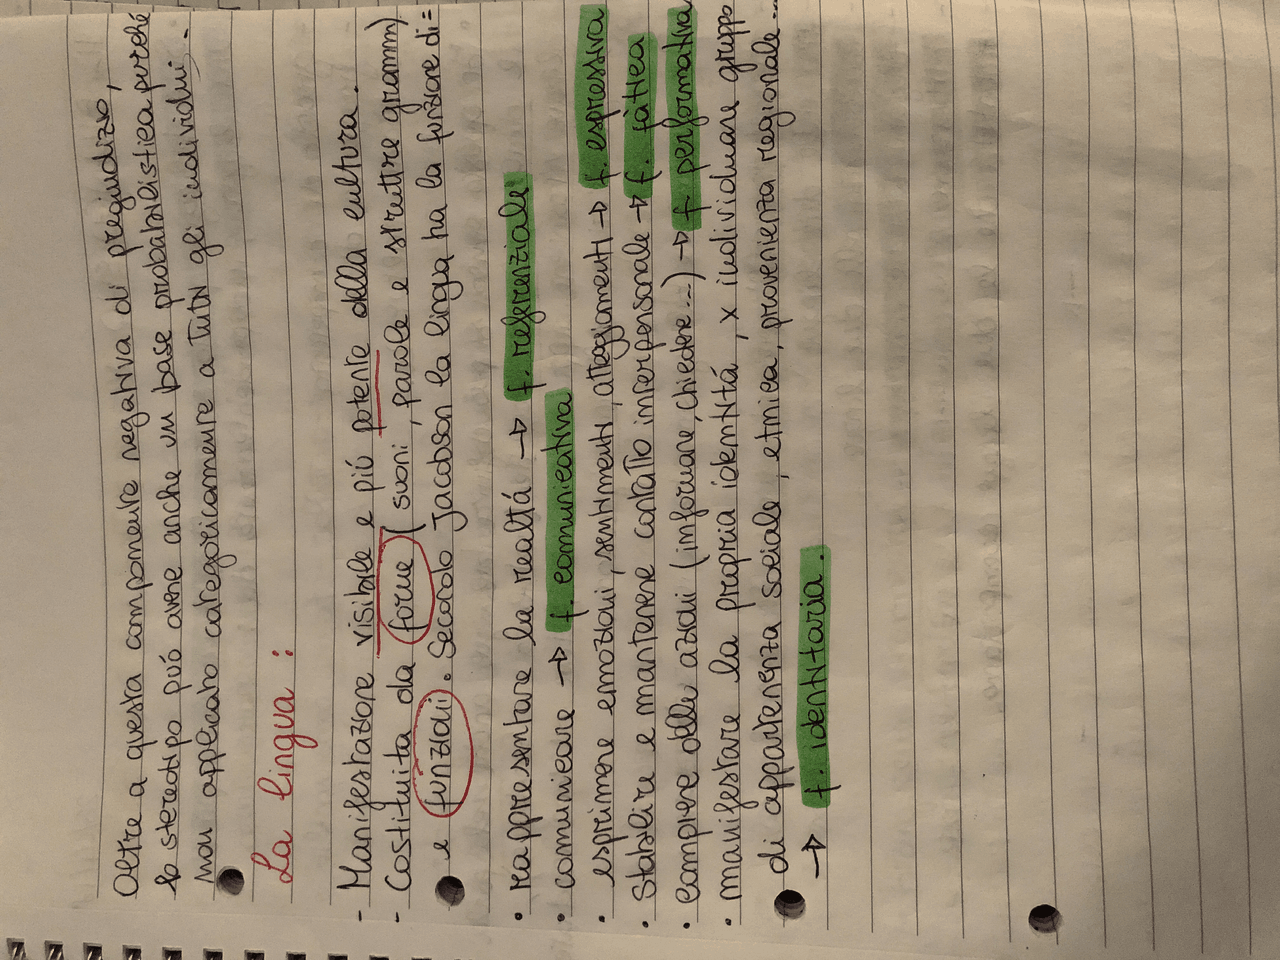 Oltre a questa componente negativa di pregiudizio,
lo stereotipo può avere anche un base probabilistica purché
non applicato categoricamente a tutti gli individui.
La lingua :
- Manifestazione visibile e più potente della cultura.
- Costituita da forme (suoni, parole e strutture gramm)
e funzioni. Secondo Jacobson la lingua ha la funzione di =
• rappresentare la realtá → f. referenziale
• comunicare → f. comunicativa
• esprimere emozioni, sentimenti, atteggiamenti → f. espressiva
• Stabilire e mantenere contatto interpersonale → f. fàtica
• compiere delle azioni (informare, chiedere...) → f. performativa
• manifestare la propria identitá, x individuare gruppo
di appartenenza sociale, etnica, provenienza regionale...
→ f. identitaria.